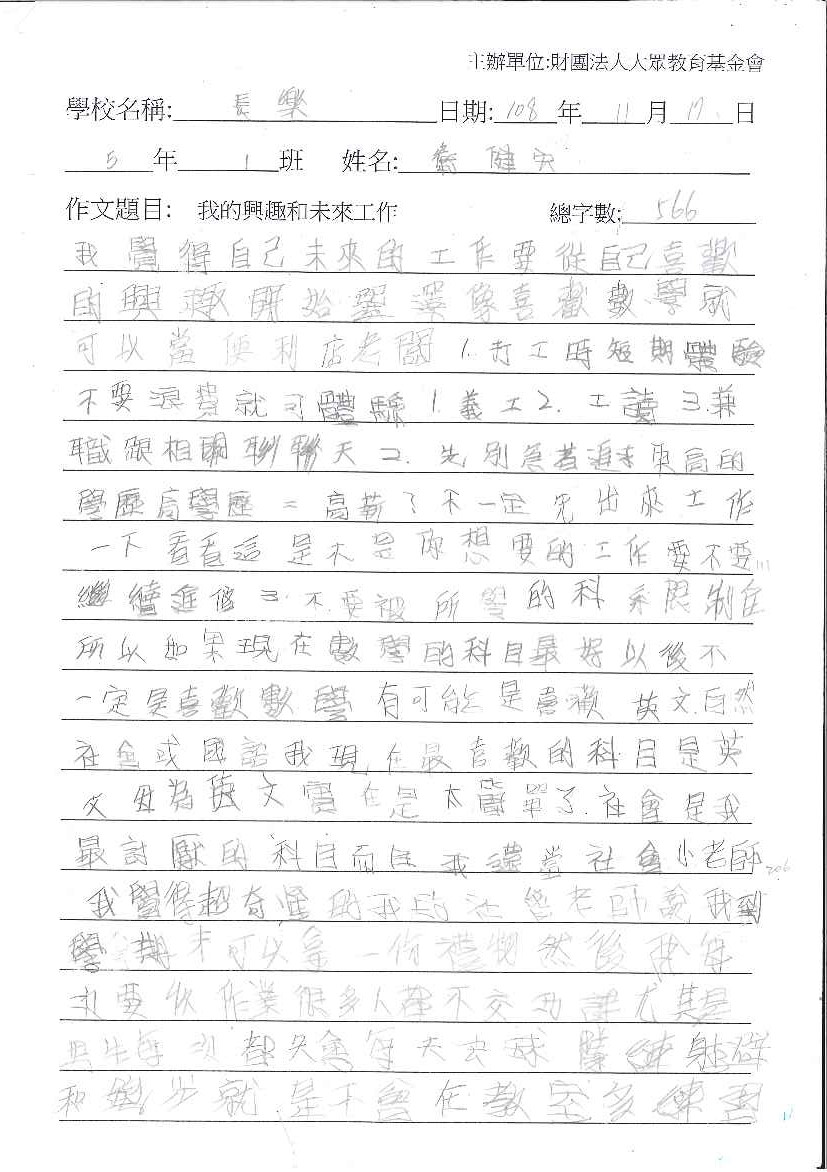 主辦單位:財團法人大眾教育基金會
學校名稱: 長樂 日期: 108 年 11 月 17 日
5 年 1 班 姓名: 健
作文題目: 我的興趣和未來工作 總字數: 566
我覺得自己未來的工作要從自己喜歡
的興趣開始 像喜歡數學就
可以當便利店老闆1.打工時短期體驗
不要浪費就可體驗1.義工2.工讀3.兼
職跟相關聊聊天2.先別急著追求更高的
學歷高學歷=高薪了不一定先出來工作
一下看看這是不是你想要的工作要不要
繼續進修3.不要被所學的科系限制住
所以如果現在數學的科目最好以後不
一定是喜歡數學有可能是喜歡英文.自然
社會或國語我現在最喜歡的科目是英
文因為英文實在是太簡單了.社會是我
最討厭的科目而且我還當社會小老師
我覺得超奇怪的我的社會老師說我到
學期末可以拿一份禮物然後
要收作業很多人都不交功課尤其是
男生每次都 每天去 練
和 步就是不會在教室多練習